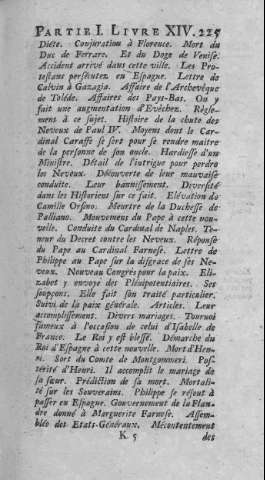 PARTIE I. LIVRE XIV. 225
Diéte. Conjuration à Florence. Mort du
Duc de Ferrare. Et du Doge de Venise.
Accident arrivé dans cette ville. Les Pro-
testans persécutez en Espagne. Lettre de
Calvin à Gazagia. Affaire de l'Archevêque
de Toléde. Affaires des Pays-Bas. On y
fait une augmentation d'Evêchez. Régle-
mens à ce sujet. Histoire de la chute des
Neveux de Paul IV. Moyens dont le Car-
dinal Caraffe se sert pour se rendre maitre
de la personne de son oncle. Hardiesse d'un
Ministre. Détail de l'intrigue pour perdre
les Neveux. Découverte de leur mauvaise
conduite. Leur bannissement. Diversité
dans les Historiens sur ce fait. Elévation de
Camille Orsino. Meurtre de la Duchesse de
Palliano. Mouvement du Pape à cette nou-
velle. Conduite du Cardinal de Naples. Te-
neur du Decret contre les Neveux. Réponse
du Pape au Cardinal Farnese. Lettre de
Philippe au Pape sur la disgrace de ses Ne-
veux. Nouveau Congrès pour la paix. Eli-
zabet y envoye des Plénipotentiaires. Ses
soupçons. Elle fait son traité particulier.
Suivi de la paix générale. Articles. Leur
accomplissement. Divers mariages. Tournoi
fameux à l'occasion de celui d'Isabelle de
France. Le Roi y est blessé. Démarche du
Roi d'Espagne à cette nouvelle. Mort d'Hen-
ri. Sort du Comte de Montgommeri. Pos-
térité d'Henri. Il accomplit le mariage de
sa sœur. Prédiction de sa mort. Mortali-
té sur les Souverains. Philippe se résout à
passer en Espagne. Gouvernement de la Flan-
dre donné à Marguerite Farnese. Assem-
blée des Etats-Généraux. Mécontentement
K 5 des